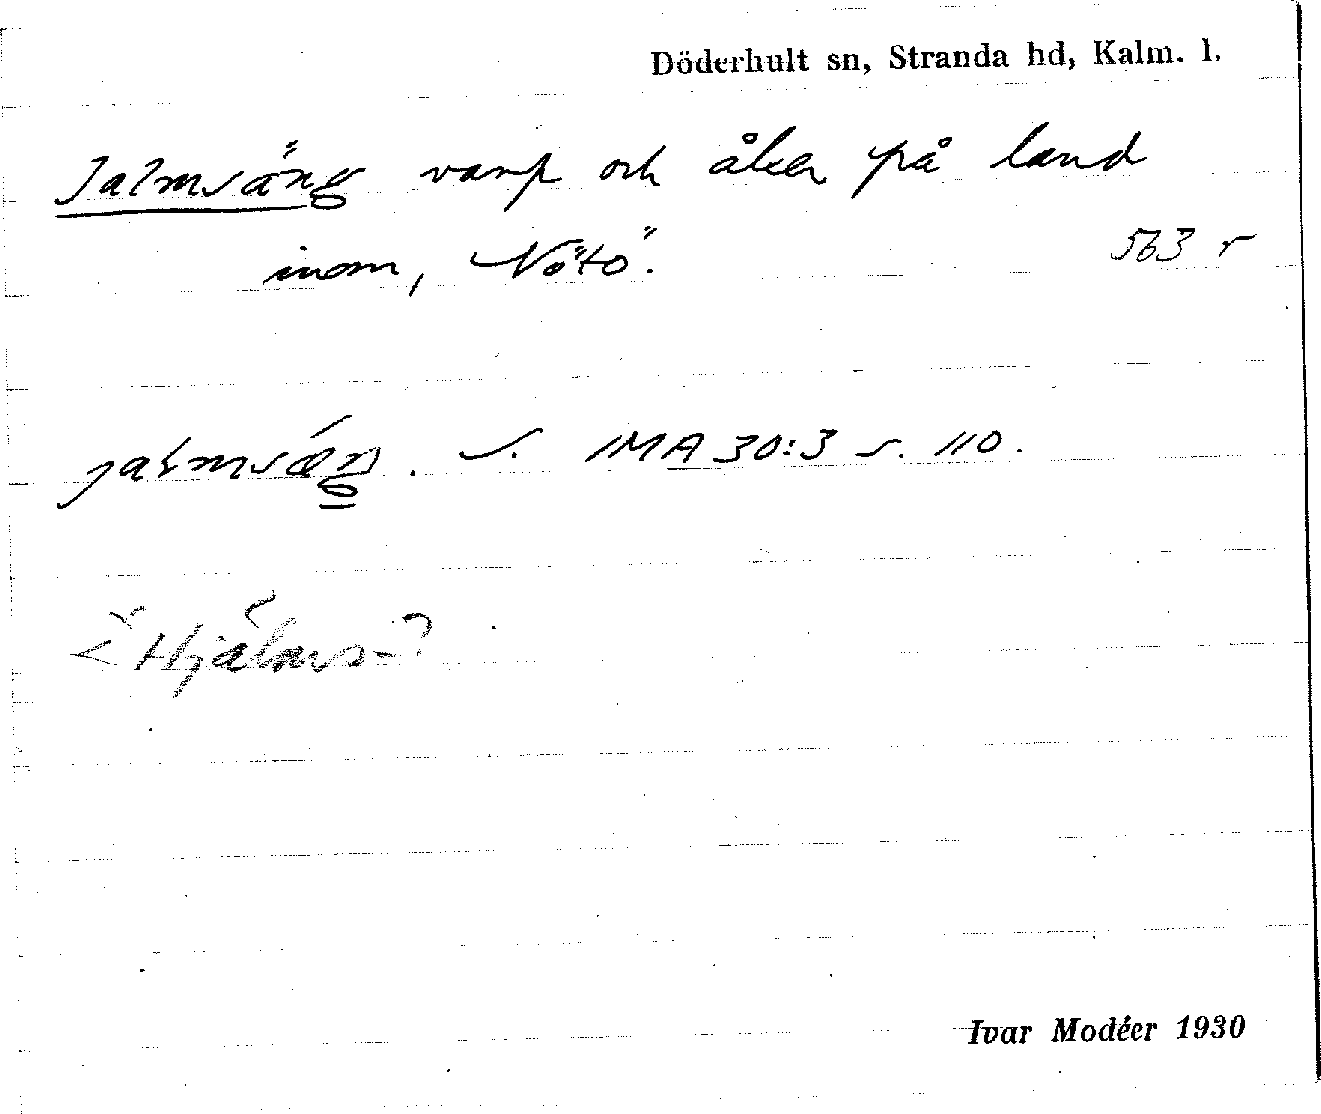 Döderhult sn, Stranda hd, Kalm. l.
Jalmsäng varp och åker på land
inom, Nötö.
563 r
jalmsæŋ. S. IMA 30:3 s. 110.
< Hjälms-?
Ivar Modéer 1930